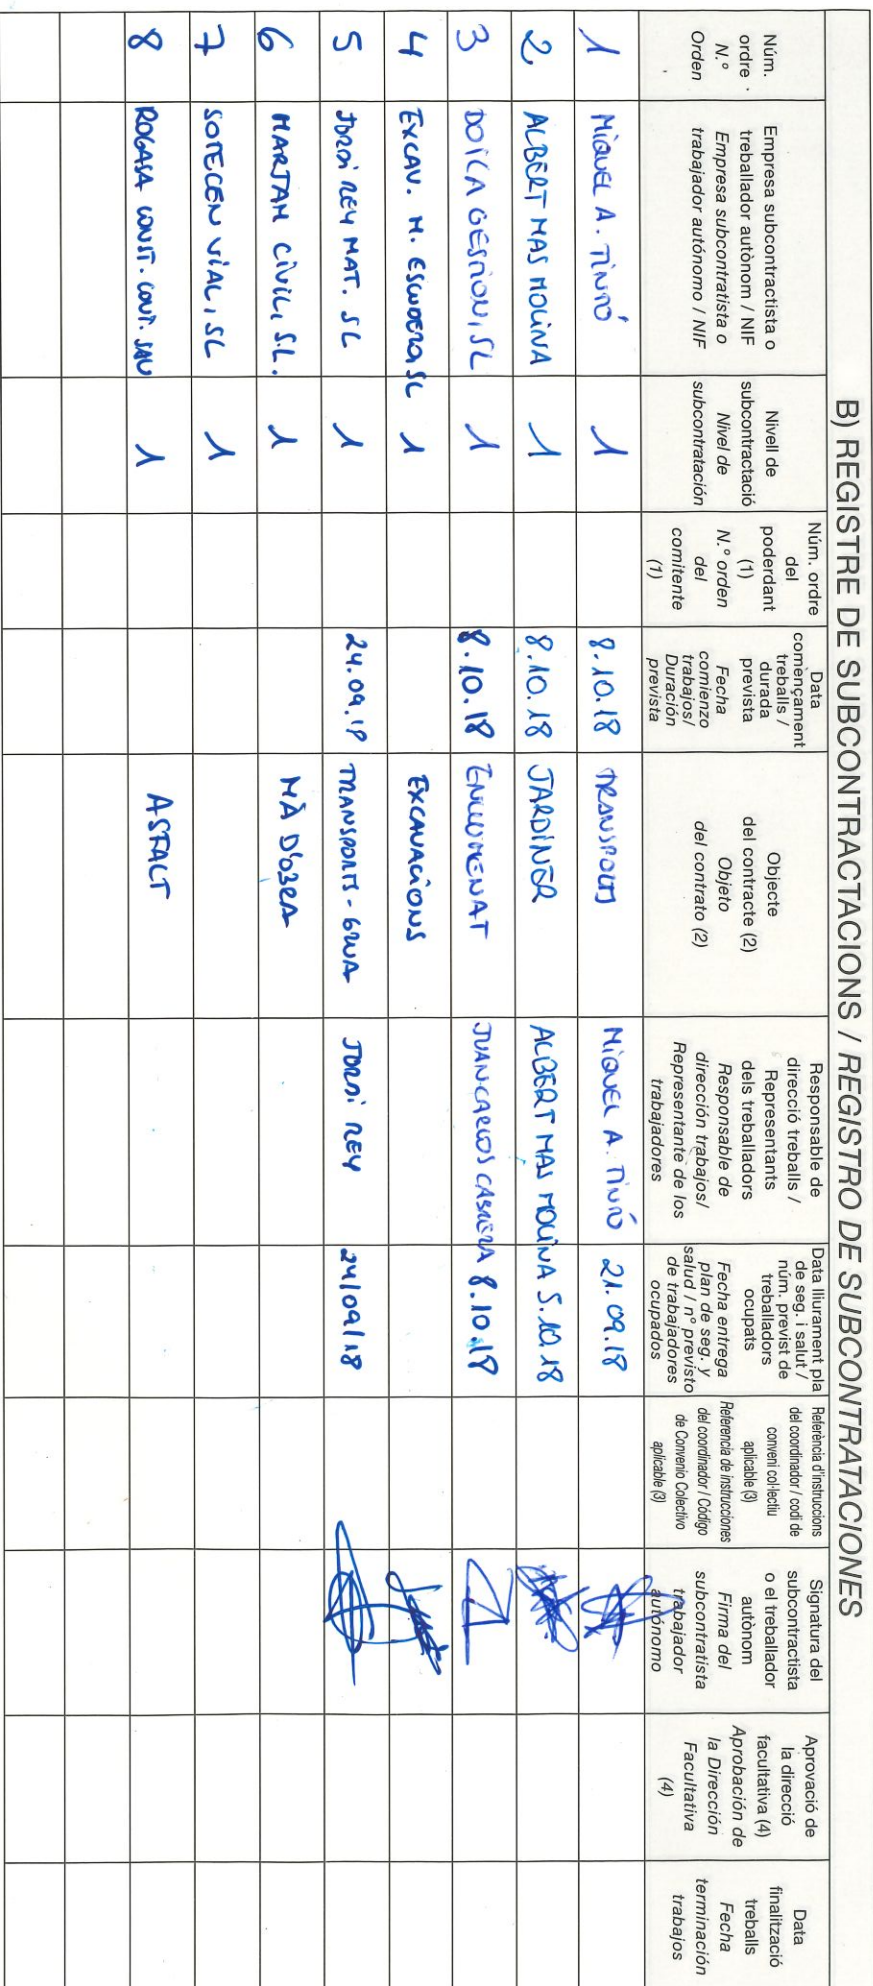 B) REGISTRE DE SUBCONTRACTACIONS / REGISTRO DE SUBCONTRATACIONES
Núm.
ordre
N.º
Orden
Empresa subcontractista o
treballador autònom / NIF
Empresa subcontratista o
trabajador autónomo / NIF
Nivell de
subcontractació
Nivel de
subcontratación
Núm. ordre
del
poderdant
(1)
N.º orden
del
comitente
(1)
Data
començament
treballs /
durada
prevista
Fecha
comienzo
trabajos/
Duración
prevista
Objecte
del contracte (2)
Objeto
del contrato (2)
Responsable de
direcció treballs /
Representants
dels treballadors
Responsable de
dirección trabajos/
Representante de los
trabajadores
Data lliurament pla
de seg. i salut /
núm. previst de
treballadors
ocupats
Fecha entrega
plan de seg. y
salud / nº previsto
de trabajadores
ocupados
Referència d'instruccions
del coordinador / codi de
conveni col·lectiu
aplicable (3)
Referencia de instrucciones
del coordinador / Código
de Convenio Colectivo
aplicable (3)
Signatura del
subcontractista
o el treballador
autònom
Firma del
subcontratista
trabajador
autónomo
Aprovació de
la direcció
facultativa (4)
Aprobación de
la Dirección
Facultativa
(4)
Data
finalització
treballs
Fecha
terminación
trabajos
1 MIQUEL A. TINTÓ 1 8.10.18 TRANSPORTS MIQUEL A. TINTÓ 21.09.18
2 ALBERT MAS MOLINA 1 8.10.18 JARDINER ALBERT MAS MOLINA 5.10.18
3 DOICA GESTION, SL 1 8.10.18 JUAN CARLOS CABRERA 8.10.18
4 EXCAV. M. ESCUDERO, SL 1 EXCAVACIONS
5 JORDI REY MAT. SL 1 24.09.18 TRANSPORTS - GRUA JORDI REY 24/09/18
6 MARJAM CIVIL, S.L. 1 MÀ D'OBRA
7 SOTECEN VIAL, SL 1
8 ROGASA CONST. CONT. SAU 1 ASFALT